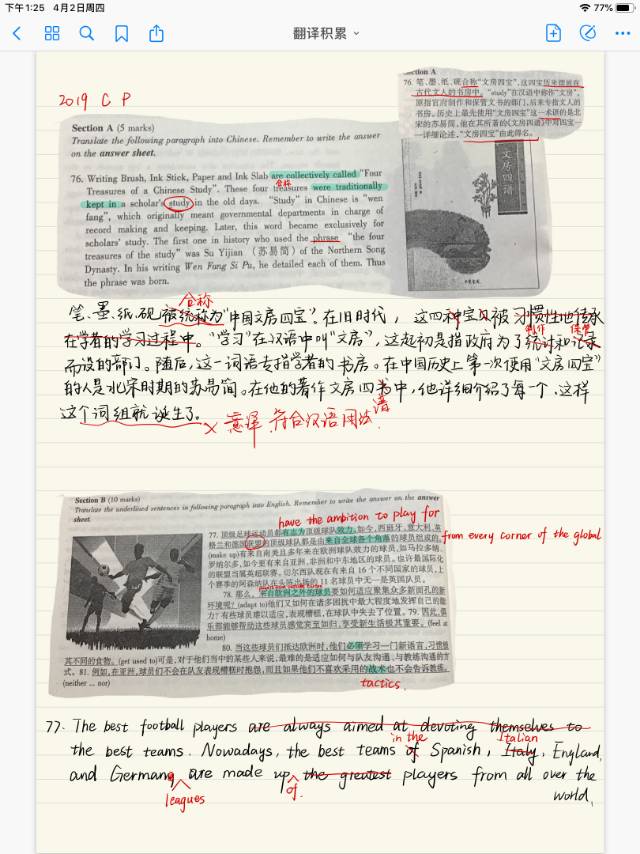 下午1:25 4月2日周四
77%
翻译积累
2019 C P
Section A (5 marks)
Translate the following paragraph into Chinese. Remember to write the answer
on the answer sheet.
76. Writing Brush, Ink Stick, Paper and Ink Slab are collectively called "Four
Treasures of a Chinese Study". These four treasures were traditionally
合称
kept in a scholar's study in the old days. "Study" in Chinese is "wen
fang", which originally meant governmental departments in charge of
record making and keeping. Later, this word became exclusively for
scholars' study. The first one in history who used the phrase "the four
treasures of the study" was Su Yijian (苏易简) of the Northern Song
Dynasty. In his writing Wen Fang Si Pu, he detailed each of them. Thus
the phrase was born.
ction A
76. 笔、墨、纸、砚合称"文房四宝"，这四宝历来摆放在
古代文人的书房中。"study"在汉语中称作"文房"，
原指官府制作和保管文书的部门，后来专指文人的
书房。历史上最先使用"文房四宝"这一术语的是北
宋的苏易简，他在其所著的《文房四谱》中对四宝一
一详细论述，"文房四宝"由此得名。
文房四谱
合称
笔、墨、纸、砚被统称为"中国文房四宝"。在旧时代，这四种宝贝被习惯性地传承
在学者的学习过程中。"学习"在汉语中叫"文房"，这起初是指政府为了统计和记录
制作 保管
而设的部门。随后，这一词语专指学者的书房。在中国历史上第一次使用"文房四宝"
的人是北宋时期的苏易简。在他的著作文房四书中，他详细介绍了每一个，这样
谱
这个词组就诞生了。
× 意译 符合汉语用法.
Section B (10 marks)
Translate the underlined sentences in following paragraph into English. Remember to write the answer on the answer
sheet.
have the ambition to play for
77. 顶级足球运动员都有志为顶级球队效力。如今，西班牙、意大利、英
格兰和德国联盟的顶级球队都是由来自全球各个角落的球员组成的。
from every corner of the global
(make up)有来自南美且多年来在欧洲球队效力的球员，如马拉多纳、
罗纳尔多，如今更有来自亚洲、非洲和中东地区的球员。也许最国际化
的联盟当属英超联赛。切尔西队现在有来自16个不同国家的球员，上
个赛季的阿森纳队在多场出场的11名球员中无一是英国队员。
78. 那么，来自欧洲之外的球员要如何适应聚集众多新面孔的新
环境呢？(adapt to)他们又如何在诸多困扰中最大程度地发挥自己的能
力？有些球员难以适应，表现糟糕，在球队中失去了位置。79. 因此，俱
乐部能够帮助这些球员感觉宾至如归，享受新生活极其重要。(feel at
home)
80. 当这些球员们抵达欧洲时，他们必须学习一门新语言，习惯极
其不同的食物。(get used to)可是，对于他们当中的某些人来说，最难的是适应如何与队友沟通、与教练沟通的方
式。81. 例如，在亚洲，球员们不会在队友表现糟糕时抱怨，而且如果他们不喜欢采用的战术也不会告诉教练。
(neither ... nor)
tactics.
77. The best football players are always aimed at devoting themselves to
in the Italian
the best teams. Nowadays, the best teams of Spanish, Italy, England,
and German are made up the greatest players from all over the
leagues of.
world.